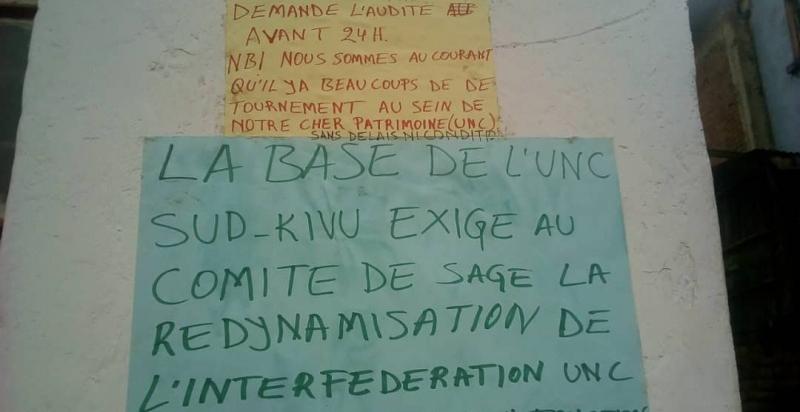 DEMANDE L'AUDITE
AVANT 24H.
NBI NOUS SOMMES AU COURANT
QU'IL YA BEAUCOUPS DE DE
TOURNEMENT AU SEIN DE
NOTRE CHER PATRIMOINE(UNC)
SANS DELAIS NI CONDITION
LA BASE DE L'UNC
SUD-KIVU EXIGE AU
COMITE DE SAGE LA
REDYNAMISATION DE
L'INTERFEDERATION UNC